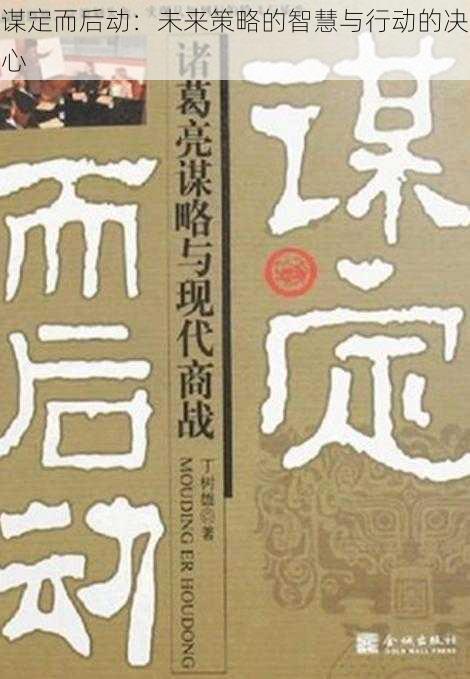 谋定而后动：未来策略的智慧与行动的决
心
谋定
而后动
诸葛亮谋略与现代商战
丁树雄◎著
MOUDING ER HOUDONG
金城出版社
GOLD WALL PRESS